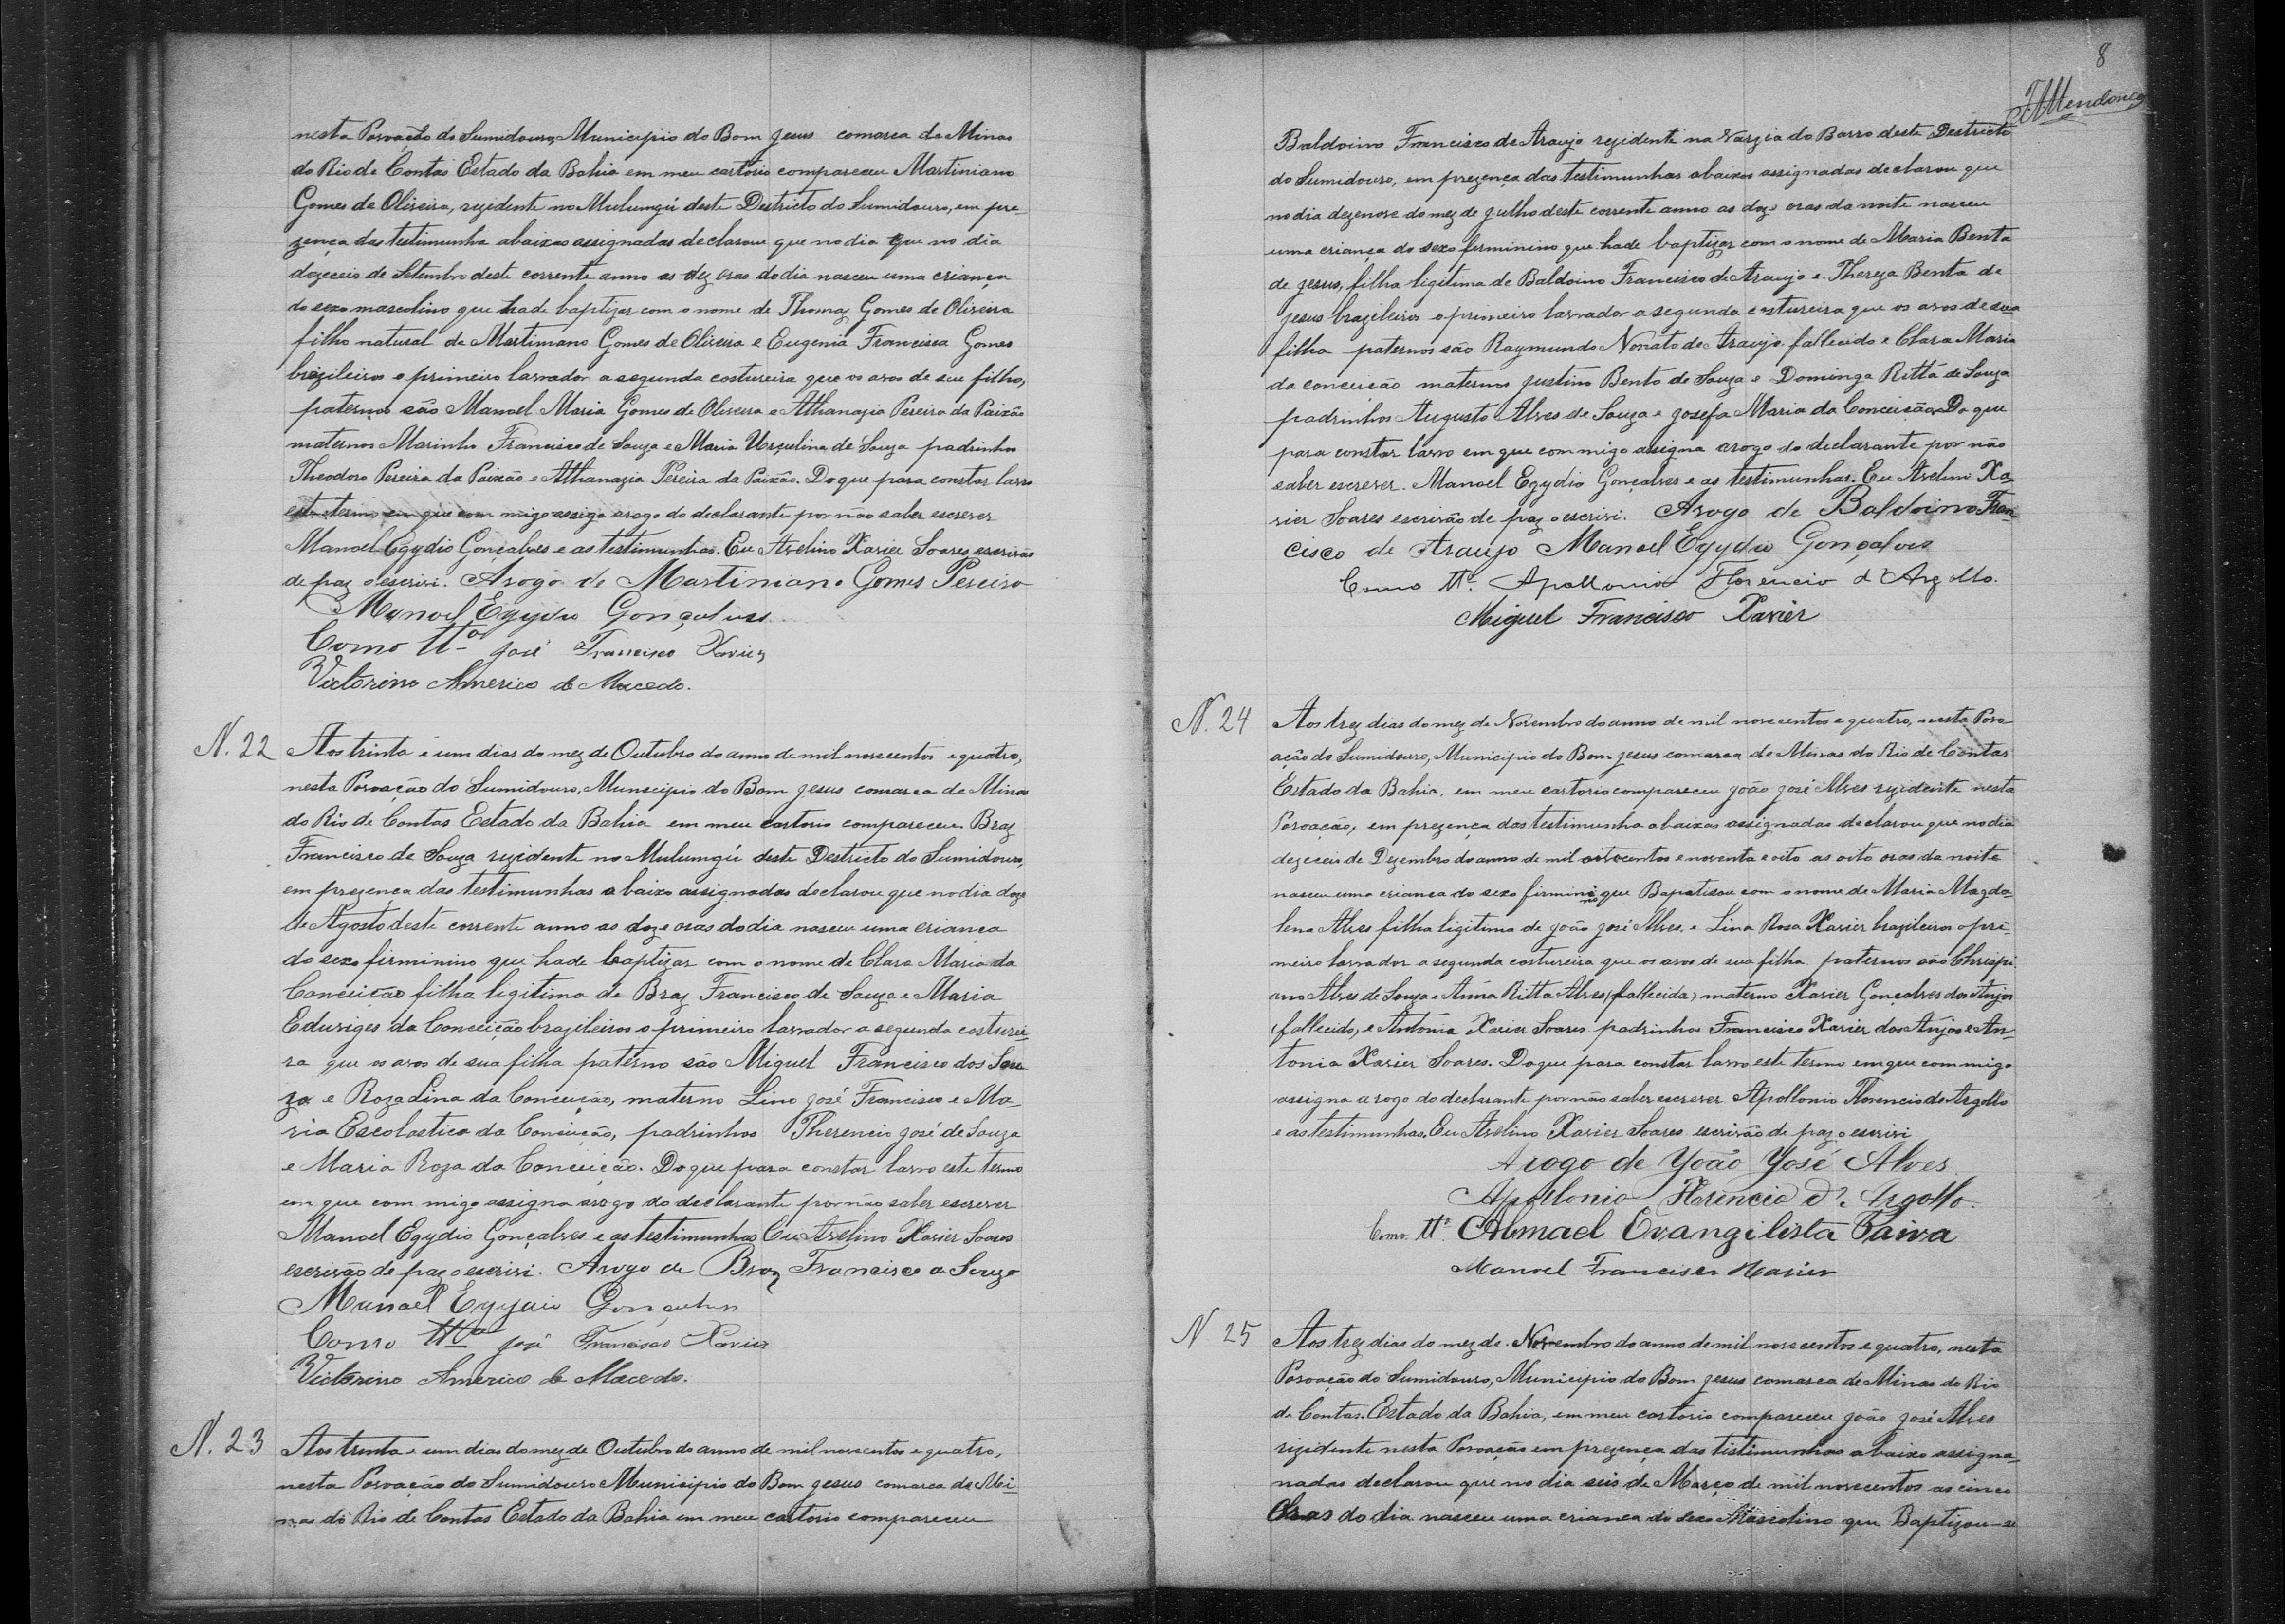 nesta Povoação do Sumidouro, Municipio do Bom Jesus comarca de Minas
do Rio de Contas Estado da Bahia em meu cartorio compareceu Martiniano
Gomes de Oliveira, rezidente no Mulungú deste Destricto do Sumidouro, em pre-
zença das testimunha abaixas assignadas declarou que no dia que no dia
dezeceis de Setembro deste corrente anno as dez oras do dia nasceu uma criança
do sexo mascolino que hade baptizar com o nome de Thomaz Gomes de Oliveira
filho natural de Martimano Gomes de Oliveira e Eugenia Francisca Gomes
brazileiros o primeiro lavrador a segunda costureira que os avos de seu filho,
paternos são Manoel Maria Gomes de Oliveira e Athanazia Pereira da Paixão
maternos Marinho Francisco de Souza e Maria Urçulina de Souza padrinhos
Theodoro Pereira da Paixão e Athanazia Pereira da Paixão. Do que para constar lavro
este termo em que com migo assiga arogo do declarante por não saber escrever
Manoel Egydio Gonçalves e as testimunhas. Eu Avelino Xavier Soares escrivão
de paz o escrivi. Arogo de Martiniano Gomes Pereira
Manoel Egydio Gonçalves
Como tta José Francisco Xavier
Victorino Americo de Macedo.
N. 22 Aos trinta e um dias do mez de Outubro do anno de mil novecentos e quatro,
nesta Povoação do Sumidouro, Municipio do Bom Jesus comarca de Minas
do Rio de Contas Estado da Bahia em meu cartorio compareceu Braz
Francisco de Souza rezidente no Mulungú deste Destricto do Sumidouro,
em prezença das testimunhas abaixo assignadas declarou que no dia doze
de Agosto deste corrente anno as doze oras do dia nasceu uma criança
do sexo firminino que hade baptizar com o nome de Clara Maria da
Conceição filha ligitima de Braz Francisco de Souza e Maria
Eduviges da Conceição brazileiros o primeiro lavrador a segunda costurei-
ra que os avos de sua filha paterno são Miguel Francisco dos Sou-
za e Roza Lina da Conceição, materno Lino José Francisco e Ma-
ria Escolastica da Conceição, padrinhos Therencio José de Souza
e Maria Roza da Conceição. Do que para constar lavro este termo
em que com migo assigna arogo do declarante por não saber escrever
Manoel Egydio Gonçalves e as testimunhas Eu Avelino Xavier Soares
escrivão de paz o escrivi. Arogo de Braz Francisco a Souza
Manoel Egydio Gonçalves
Como tta José Francisco Xavier
Victorino Americo de Macedo.
N. 23 Aos trinta e um dias do mez de Outubro do anno de mil novecentos e quatro,
nesta Povoação do Sumidouro Municipio do Bom Jesus comarca de Mi-
nas do Rio de Contas Estado da Bahia em meu cartorio compareceu
8
Mendonça
Baldoino Francisco de Araujo rezidente na Vargia do Barro deste Destricto
do Sumidouro, em prezença das testimunhas abaixas assignadas declarou que
no dia dezenove do mez de Julho deste corrente anno as doze oras da noite nasceu
uma criança do sexo firminino que hade baptizar com o nome de Maria Benta
de Jesus, filha ligitima de Baldoino Francisco de Araujo e Thereza Benta de
Jesus brazileiros o primeiro lavrador a segunda costureira que os avos de sua
filha paternos são Raymundo Nonato de Araujo fallecido e Clara Maria
da conceição maternos Justino Bento de Souza e Dominga Ritta de Souza
padrinhos Augusto Alves de Souza e Josefa Maria da Conceição Do que
para constar lavro em que com migo assigna arogo do declarante por não
saber escrever. Manoel Egydio Gonçalves e as testimunhas. Eu Avelino Xa-
vier Soares escrivão de paz o escrivi. Arogo de Baldoino Fran-
cisco de Araujo Manoel Egydio Gonçalves
Como tta. Apollonio Florencio d'Argollo.
Miguel Francisco Xavier
N. 24 Aos trez dias do mez de Novembro do anno de mil novecentos e quatro, nesta Povo-
ação do Sumidouro, Municipio do Bom Jesus comarca de Minas do Rio de Contas
Estado da Bahia, em meu cartorio compareceu João José Alves rezidente nesta
Povoação, em prezença das testimunha abaixas assignadas declarou que no dia
dezeceis de Dezembro do anno de mil oitocentos e noventa e oito as oito oras da noite
nasceu uma crianca do sexo firminino que Bapatisou com o nome de Maria Magda-
lena Alves filha ligitima de João José Alves. e Lina Roza Xavier brazileiros o pri-
meiro lavrador a segunda costureira que os avos de sua filha paternos são Chrispi-
ano Alves de Souza e Anna Ritta Alves (fallecida) materno Xavier Gonçalves dos Anjos
(fallecido) e Antonia Xavier Soares padrinhos Francisco Xavier dos Anjos e An-
tonia Xavier Soares. Do que para constar lavro este termo em que com migo
assigna arogo do declarante por não saber escrever Apollonio Florencio de Argollo
e as testimunhas, Eu Avelino Xavier Soares escrivão de paz o escrivi
Arogo de João José Alves
Apollonio Florencio d'Argollo.
Como tta. Abmael Evangilista Paiva
Manoel Francisco Xavier
N 25 Aos trez dias do mez de Novembro do anno de mil novecentos e quatro, nesta
Povoação do Sumidouro, Municipio do Bom Jesus comarca de Minas do Rio
de Contas. Estado da Bahia, em meu cartorio compareceu João José Alves
rizidente nesta Povoação em prezença das tistimunhas abaixo assigna-
nadas declarou que no dia seis de Março de mil novecentos as cinco
Oras do dia nasceu uma crianca do sexo Mascolino que Baptizou-se